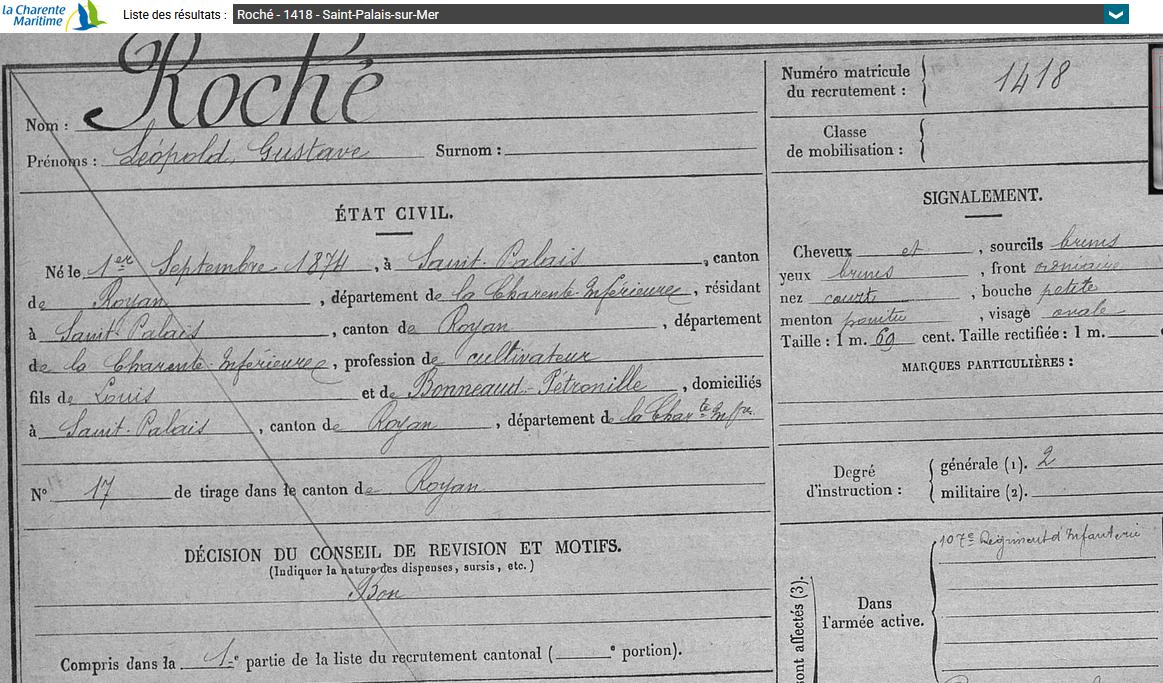 la Charente
Maritime
Liste des résultats :
Roché - 1418 - Saint-Palais-sur-Mer
Nom : Roché
Prénoms : Léopold, Gustave Surnom :
Numéro matricule
du recrutement : 1418
Classe
de mobilisation :
ÉTAT CIVIL.
Né le 1er Septembre 1874, à Saint-Palais, canton
de Royan, département de la Charente-Inférieure, résidant
à Saint-Palais, canton de Royan, département
de la Charente-Inférieure, profession de cultivateur
fils de Louis et de Bonneaud-Pétronille, domiciliés
à Saint-Palais, canton de Royan, département de la Charte Infre
N° 17 de tirage dans le canton de Royan
DÉCISION DU CONSEIL DE REVISION ET MOTIFS.
(Indiquer la nature des dispenses, sursis, etc.)
Bon
Compris dans la 1re partie de la liste du recrutement cantonal ( e portion).
SIGNALEMENT.
Cheveux et, sourcils bruns
yeux bruns, front ordinaire
nez court, bouche petite
menton pointu, visage ovale
Taille : 1 m. 69 cent. Taille rectifiée : 1 m.
MARQUES PARTICULIÈRES :
Degré
d'instruction :
générale (1). 2
militaire (2).
sont affectés (3).
Dans
l'armée active.
107e Régiment d'Infanterie